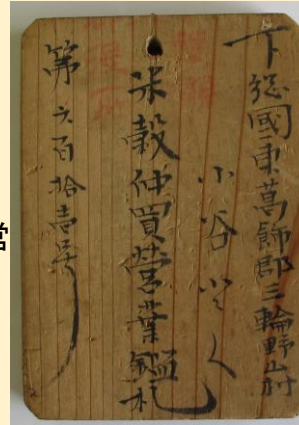 下総國東葛飾郡三輪野山村
小谷
米穀仲買營業鑑札
第六百拾壱号
営